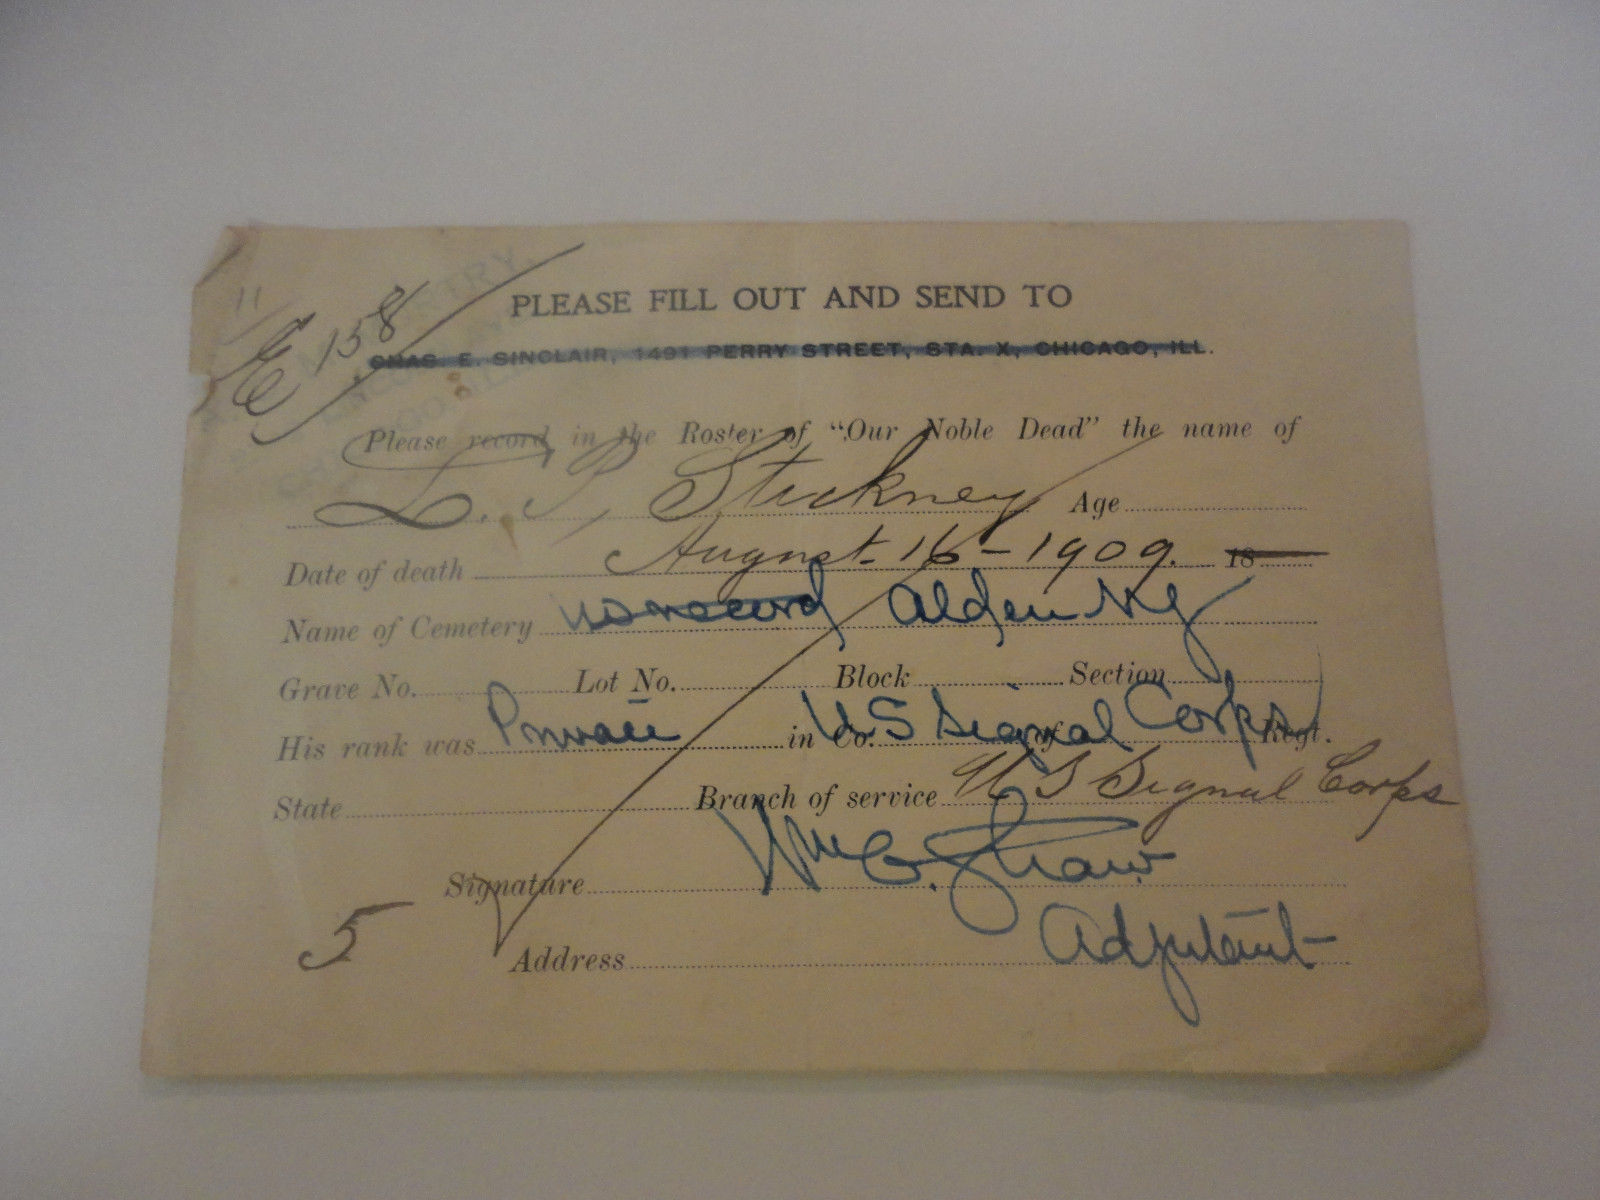 11
E 158
PLEASE FILL OUT AND SEND TO
CHAS. E. SINCLAIR, 1491 PERRY STREET, STA. X, CHICAGO, ILL.
Please record in the Roster of "Our Noble Dead" the name of
L. P. Stickney Age
Date of death August 16 - 1909. 18
Name of Cemetery no record Alden NY
Grave No. Lot No. Block Section
His rank was Private in Co. U S Signal Corps of Regt.
State Branch of service U S Signal Corps
Signature Wm G. Shaw
5 Address Adjutant